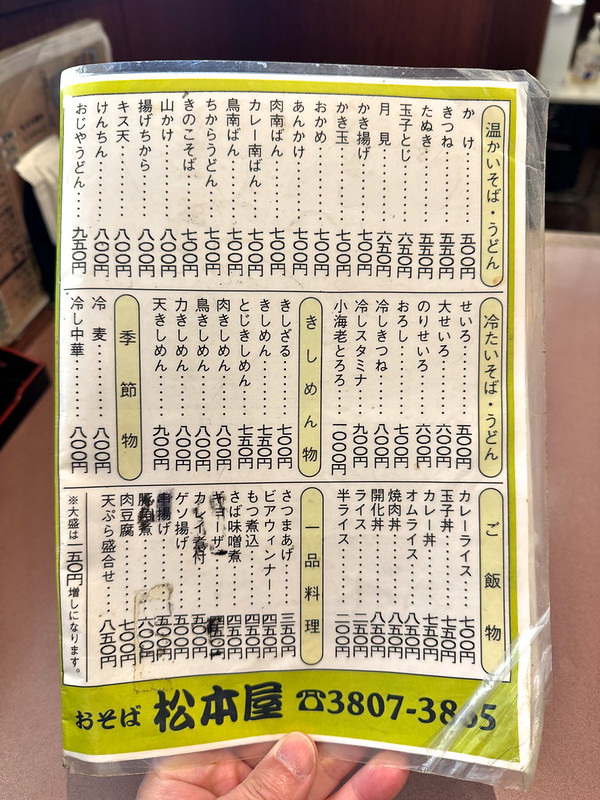 温かいそば・うどん
かけ……五〇〇円
きつね……五五〇円
たぬき……五五〇円
玉子とじ……六五〇円
月見……六五〇円
かき揚げ……七〇〇円
かき玉……七〇〇円
おかめ……七〇〇円
あんかけ……七〇〇円
肉南ばん……七〇〇円
カレー南ばん……七〇〇円
鳥南ばん……七〇〇円
ちからうどん……七〇〇円
きのこそば……七〇〇円
山かけ……八〇〇円
揚げちから……八〇〇円
キス天……八〇〇円
けんちん……八〇〇円
おじやうどん……九五〇円
冷たいそば・うどん
せいろ……五〇〇円
大せいろ……六〇〇円
のりせいろ……六〇〇円
おろし……七〇〇円
冷しきつね……八〇〇円
冷しスタミナ……九〇〇円
小海老とろろ……一〇〇〇円
きしめん物
きしざる……七〇〇円
きしめん……七五〇円
とじきしめん……七五〇円
肉きしめん……八〇〇円
鳥きしめん……八〇〇円
力きしめん……八〇〇円
天きしめん……九〇〇円
季節物
冷麦……八〇〇円
冷し中華……八〇〇円
ご飯物
カレーライス……七〇〇円
玉子丼……七五〇円
カレー丼……七五〇円
オムライス……八五〇円
焼肉丼……八五〇円
開化丼……八五〇円
ライス……二五〇円
半ライス……二〇〇円
一品料理
さつまあげ……三五〇円
ビアウィンナー……四五〇円
もつ煮込……四五〇円
さば味噌煮……四五〇円
ギョーザ
カレイ煮付……五〇〇円
ゲソ揚げ……五〇〇円
串揚げ……五〇〇円
豚角煮……六〇〇円
肉豆腐……七〇〇円
天ぷら盛合せ……八五〇円
※大盛は一五〇円増しになります。
おそば 松本屋